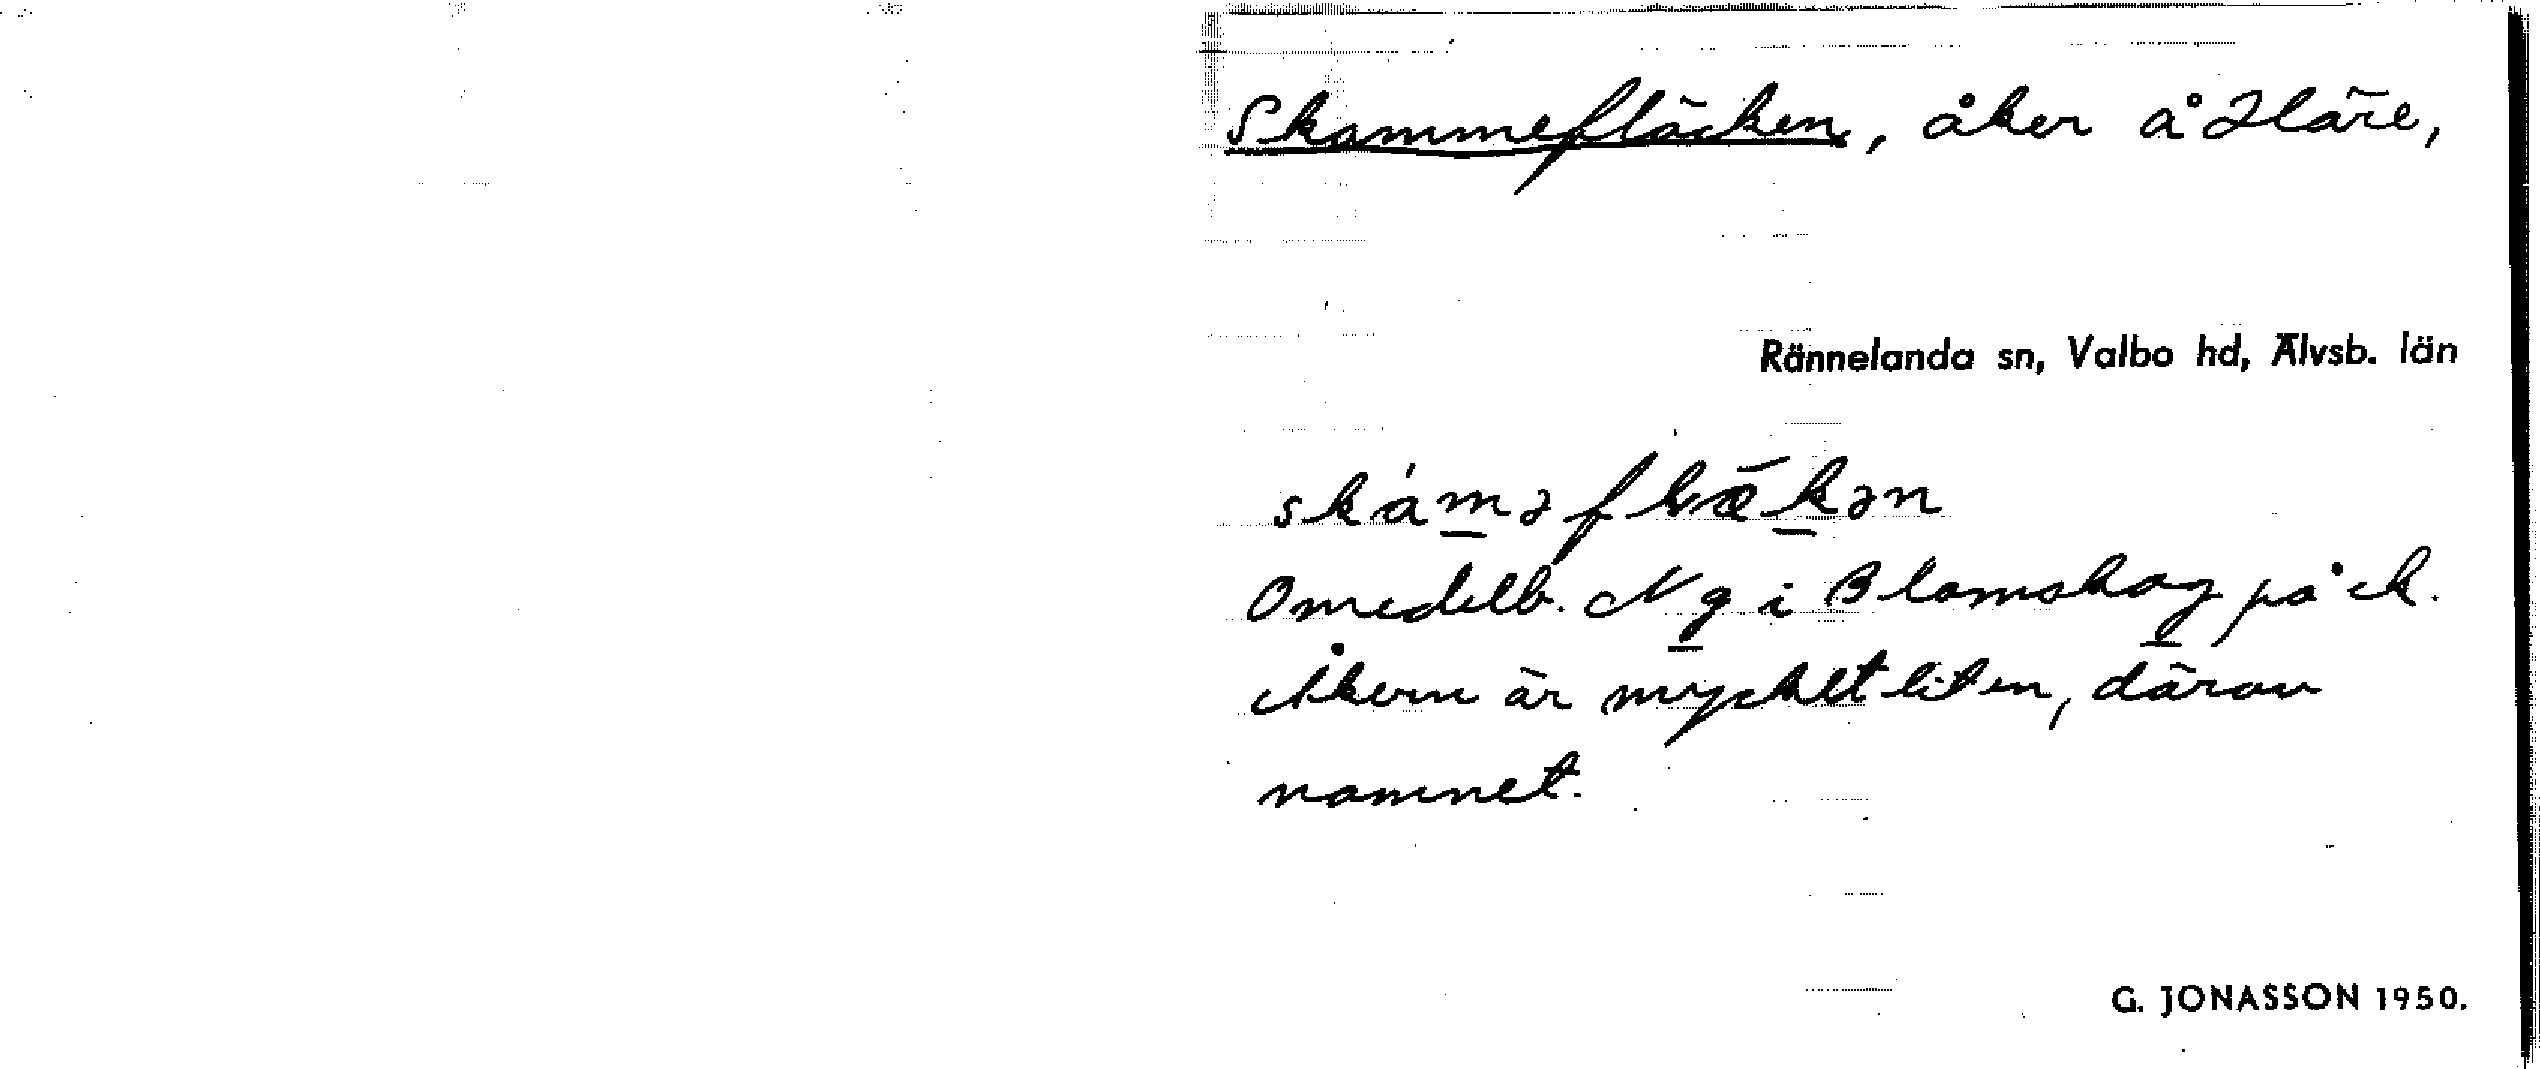 Skammefläcken, åker å Häre,
Rännelanda sn, Valbo hd, Älvsb. län
skáməflæ̅kən
Omedelb. N g i Blomskog på ek.
Åkern är mycket liten, därav
namnet.
G. JONASSON 1950.